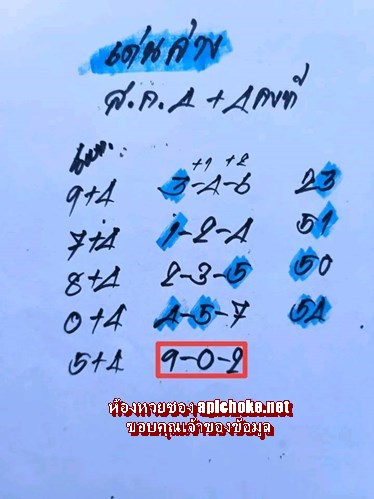 เด่นล่าง
ส.ค.4+4คงที่
+1 +2
9+4 3-4-6 23
7+4 1-2-4 51
8+4 2-3-5 50
0+4 4-5-7 54
5+4 9-0-2
ห้องหวยซอง apichoke.net
ขอบคุณเจ้าของข้อมูล